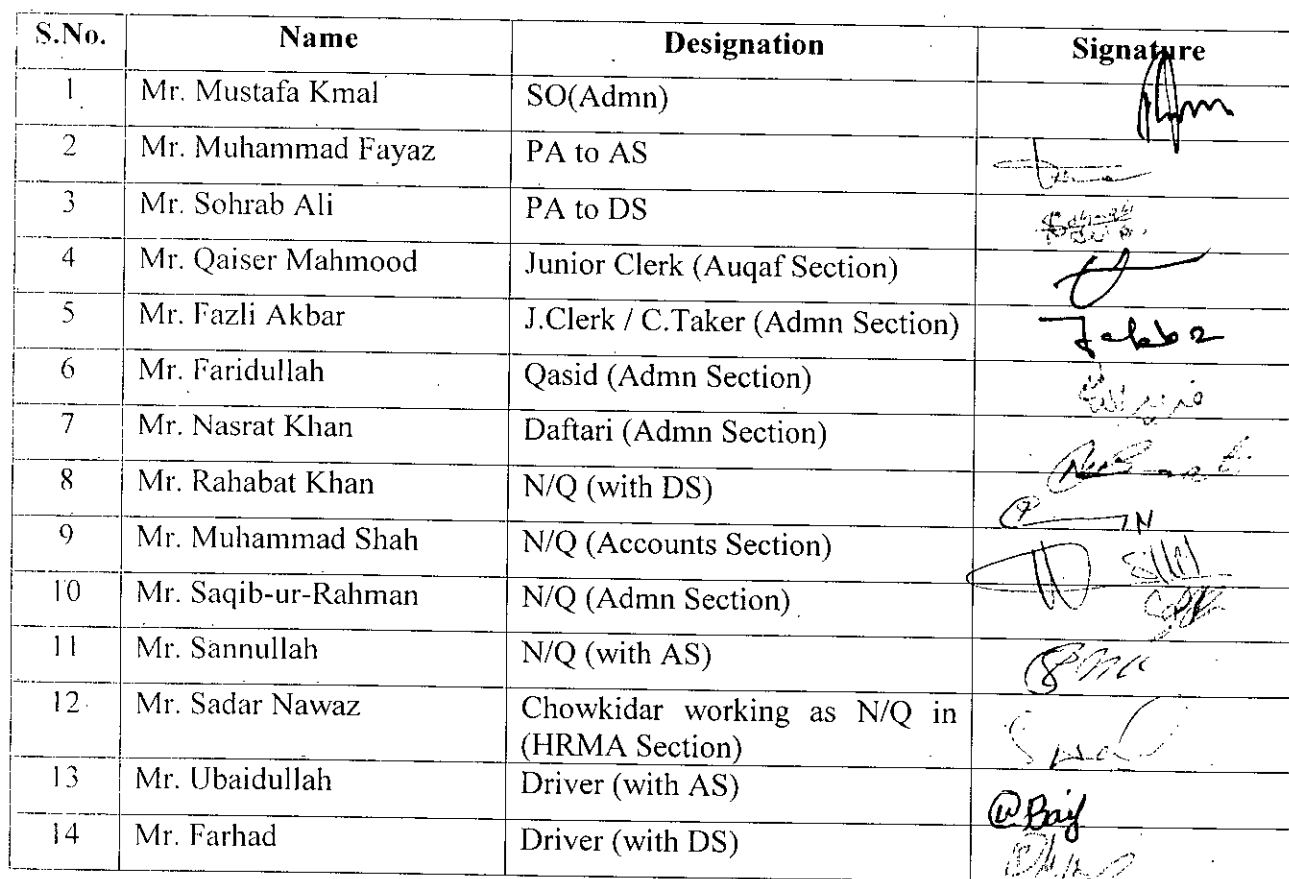 S.No. Name Designation Signature
1 Mr. Mustafa Kmal SO(Admn)
2 Mr. Muhammad Fayaz PA to AS
3 Mr. Sohrab Ali PA to DS
4 Mr. Qaiser Mahmood Junior Clerk (Auqaf Section)
5 Mr. Fazli Akbar J.Clerk / C.Taker (Admn Section)
6 Mr. Faridullah Qasid (Admn Section)
7 Mr. Nasrat Khan Daftari (Admn Section)
8 Mr. Rahabat Khan N/Q (with DS)
9 Mr. Muhammad Shah N/Q (Accounts Section)
10 Mr. Saqib-ur-Rahman N/Q (Admn Section)
11 Mr. Sannullah N/Q (with AS)
12 Mr. Sadar Nawaz Chowkidar working as N/Q in
(HRMA Section)
13 Mr. Ubaidullah Driver (with AS)
14 Mr. Farhad Driver (with DS)